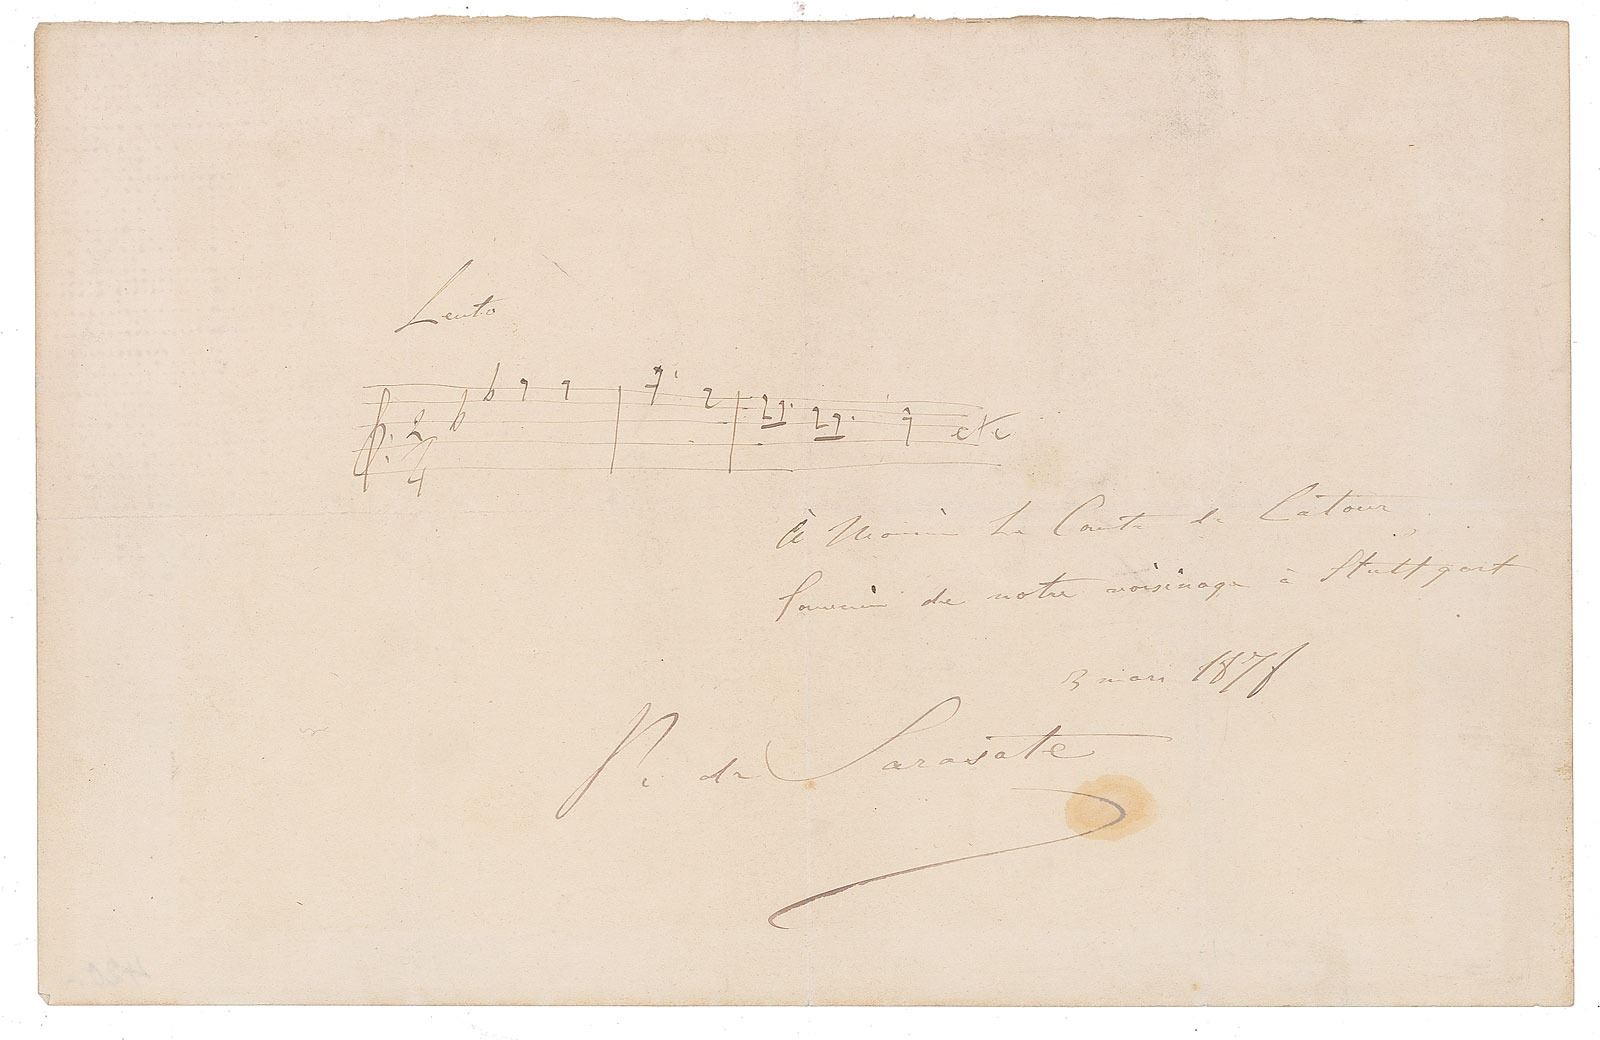 Lento
2
4
etc
à Monsieur Le Comte de Latour
Souvenir de notre voisinage à Stuttgart
3 mars 187
P. de Sarasate